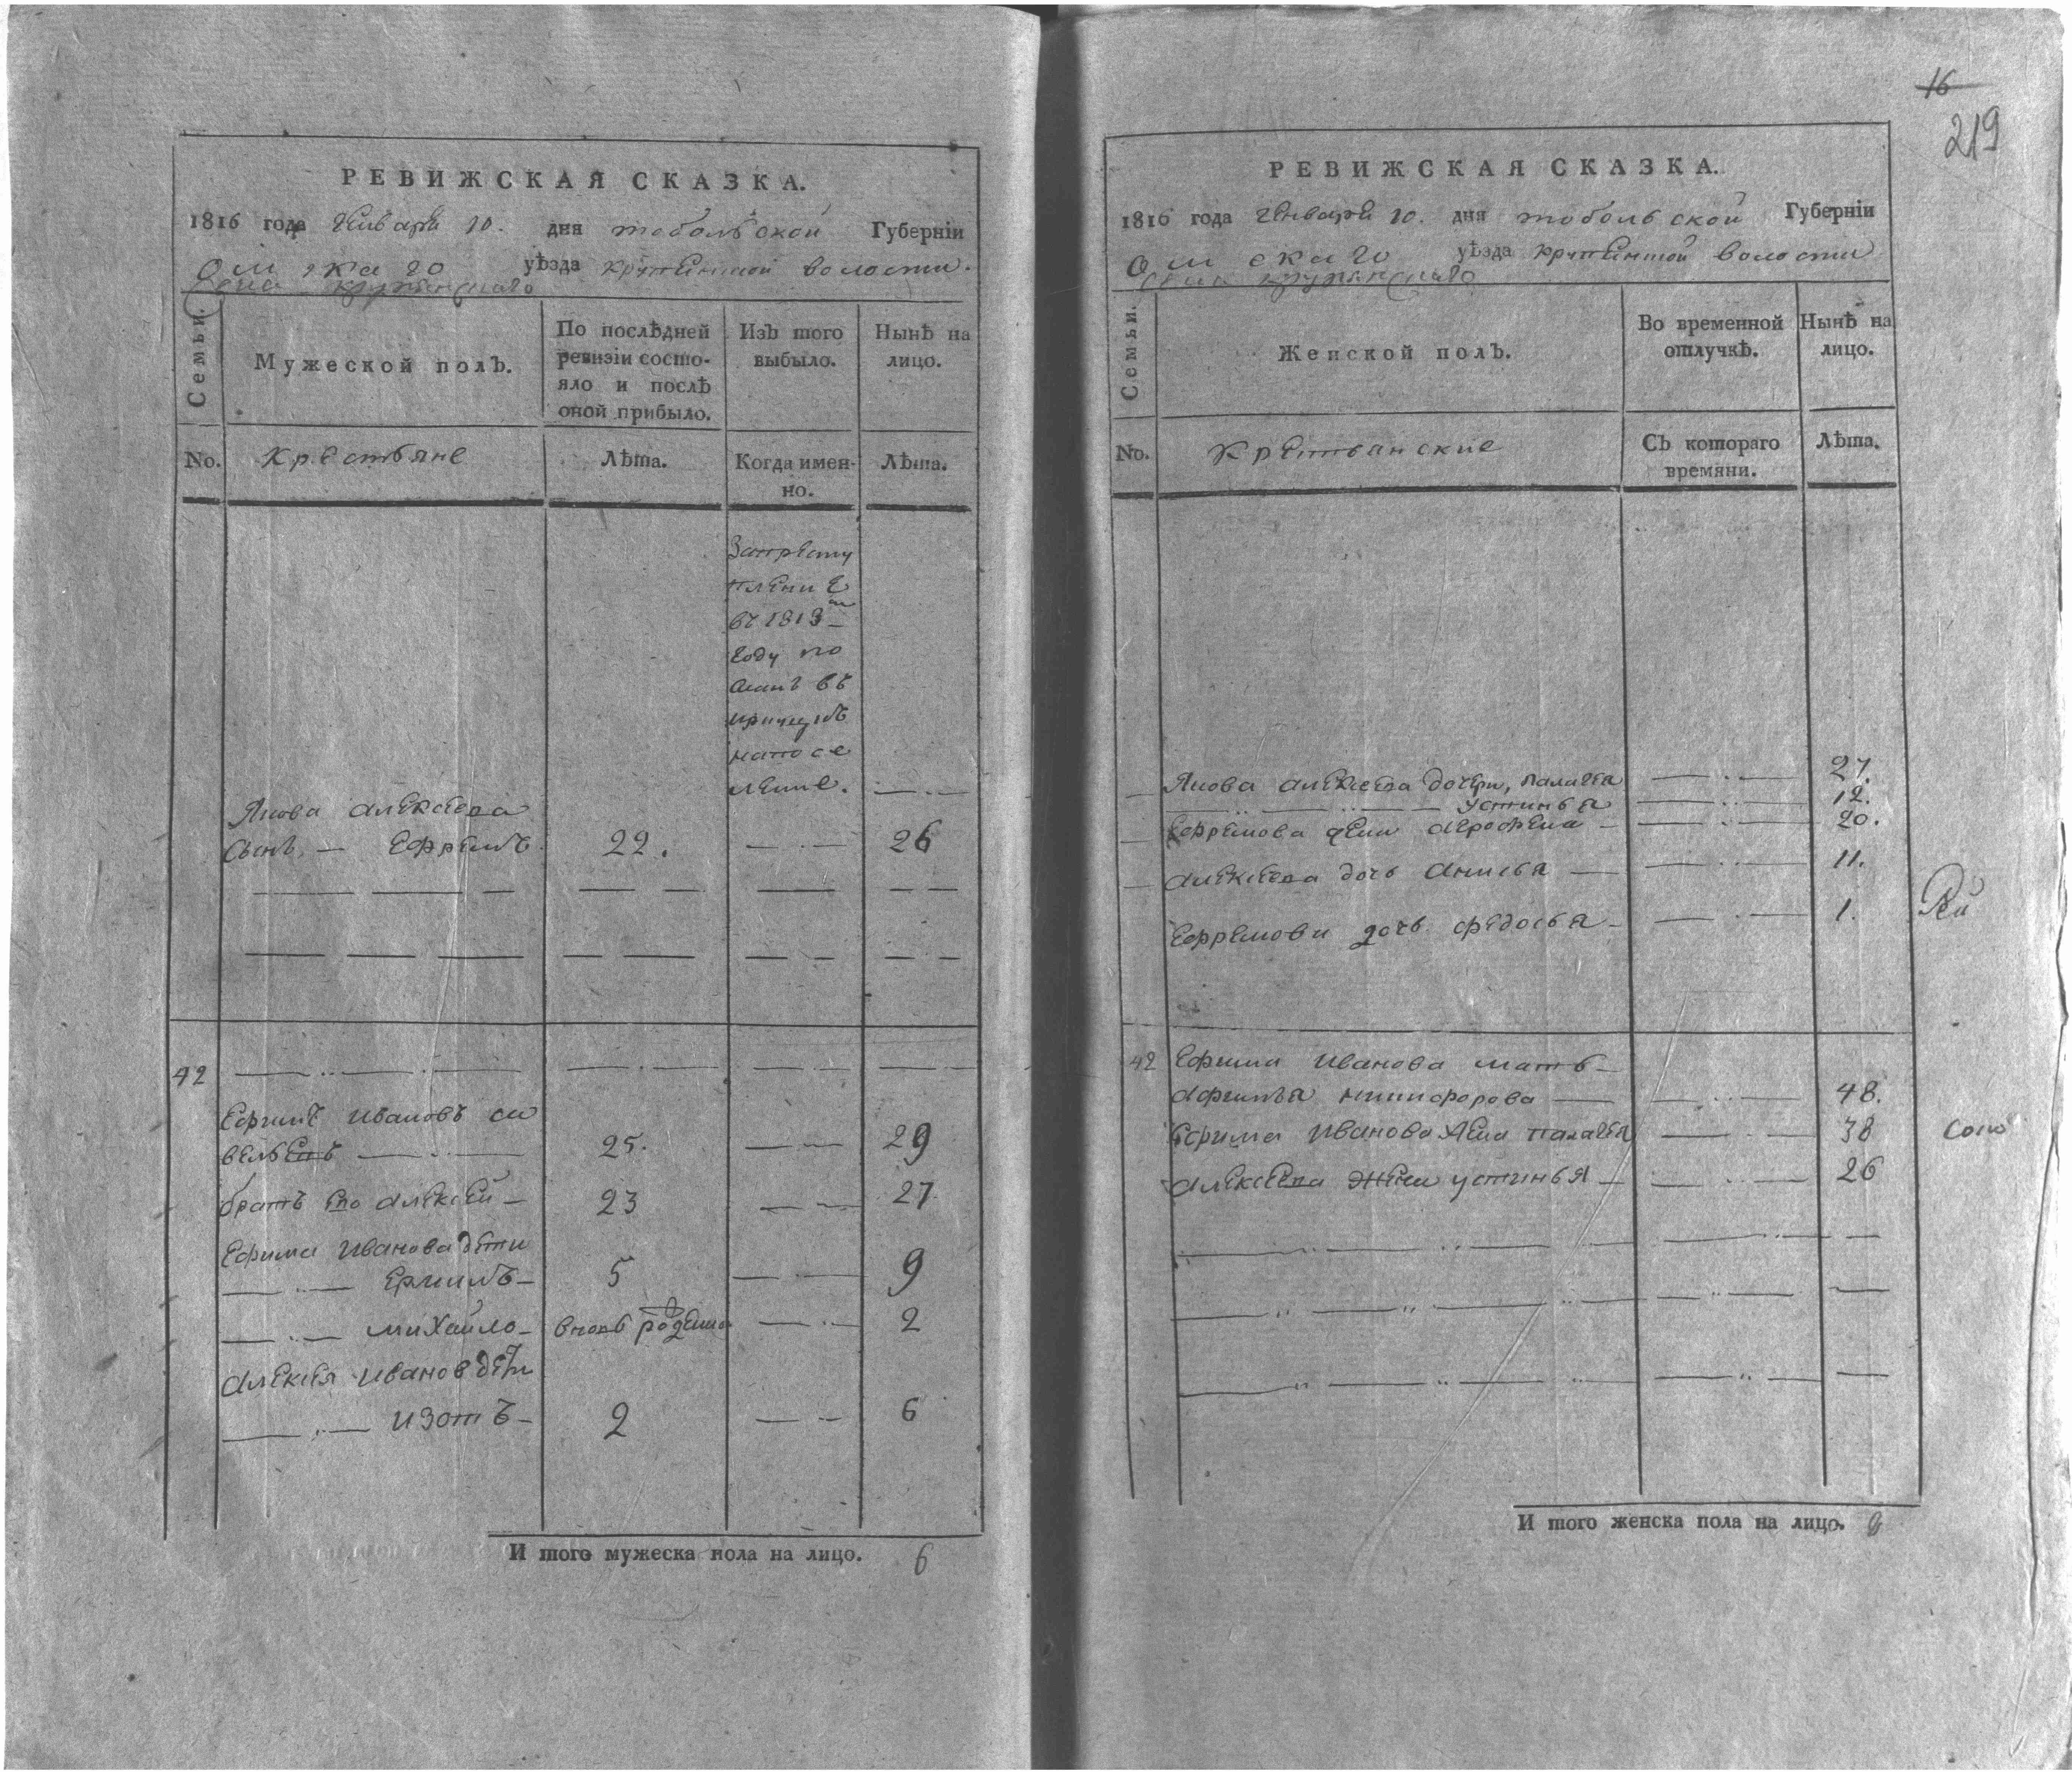 РЕВИЖСКАЯ СКАЗКА.
1816 года Генваря 10. дня тобольской Губерніи
Омскаго уѣзда крутинской волости.
Села крутинскаго
Семьи.
Мужеской полъ.
По послѣдней ревизіи состо-
яло и послѣ
оной прибыло.
Изъ того
выбыло.
Нынѣ на
лицо.
No.
Крестьяне
Лѣта.
Когда имен-
но.
Лѣта.
Запресту
пление
въ 1813м
году по
сланъ въ
на посе
ление.
Алексеева
сынъ, Ефремъ 22. 26
42
Ефимъ Ивановъ са
вельевъ 25. 29
братъ его Алексей 23 27
Ефима Иванова дети
Ермилъ 5 9
Михайло вновь рожденъ 2
Алексея Иванов дети
Изотъ 2 6
И того мужеска пола на лицо. 6
16
219
РЕВИЖСКАЯ СКАЗКА.
1816 года Генваря 10. дня тобольской Губерніи
Омскаго уѣзда крутинской волости
Села крутинскаго
Семьи.
Женской полъ.
Во временной
отлучкѣ.
Нынѣ на
лицо.
No.
Крестьянские
Съ котораго
времяни.
Лѣта.
Алексеева дочери, палагея 27.
устинья 12.
Ефремова жена 20.
Алексеева дочь Анисья 11.
Ефремови дочь федосья 1.
42 Ефима Иванова мать
Афимья никифорова 48.
Ефима Иванова жена палагея 38
Алексеева жена устинья 26
И того женска пола на лицо. 8